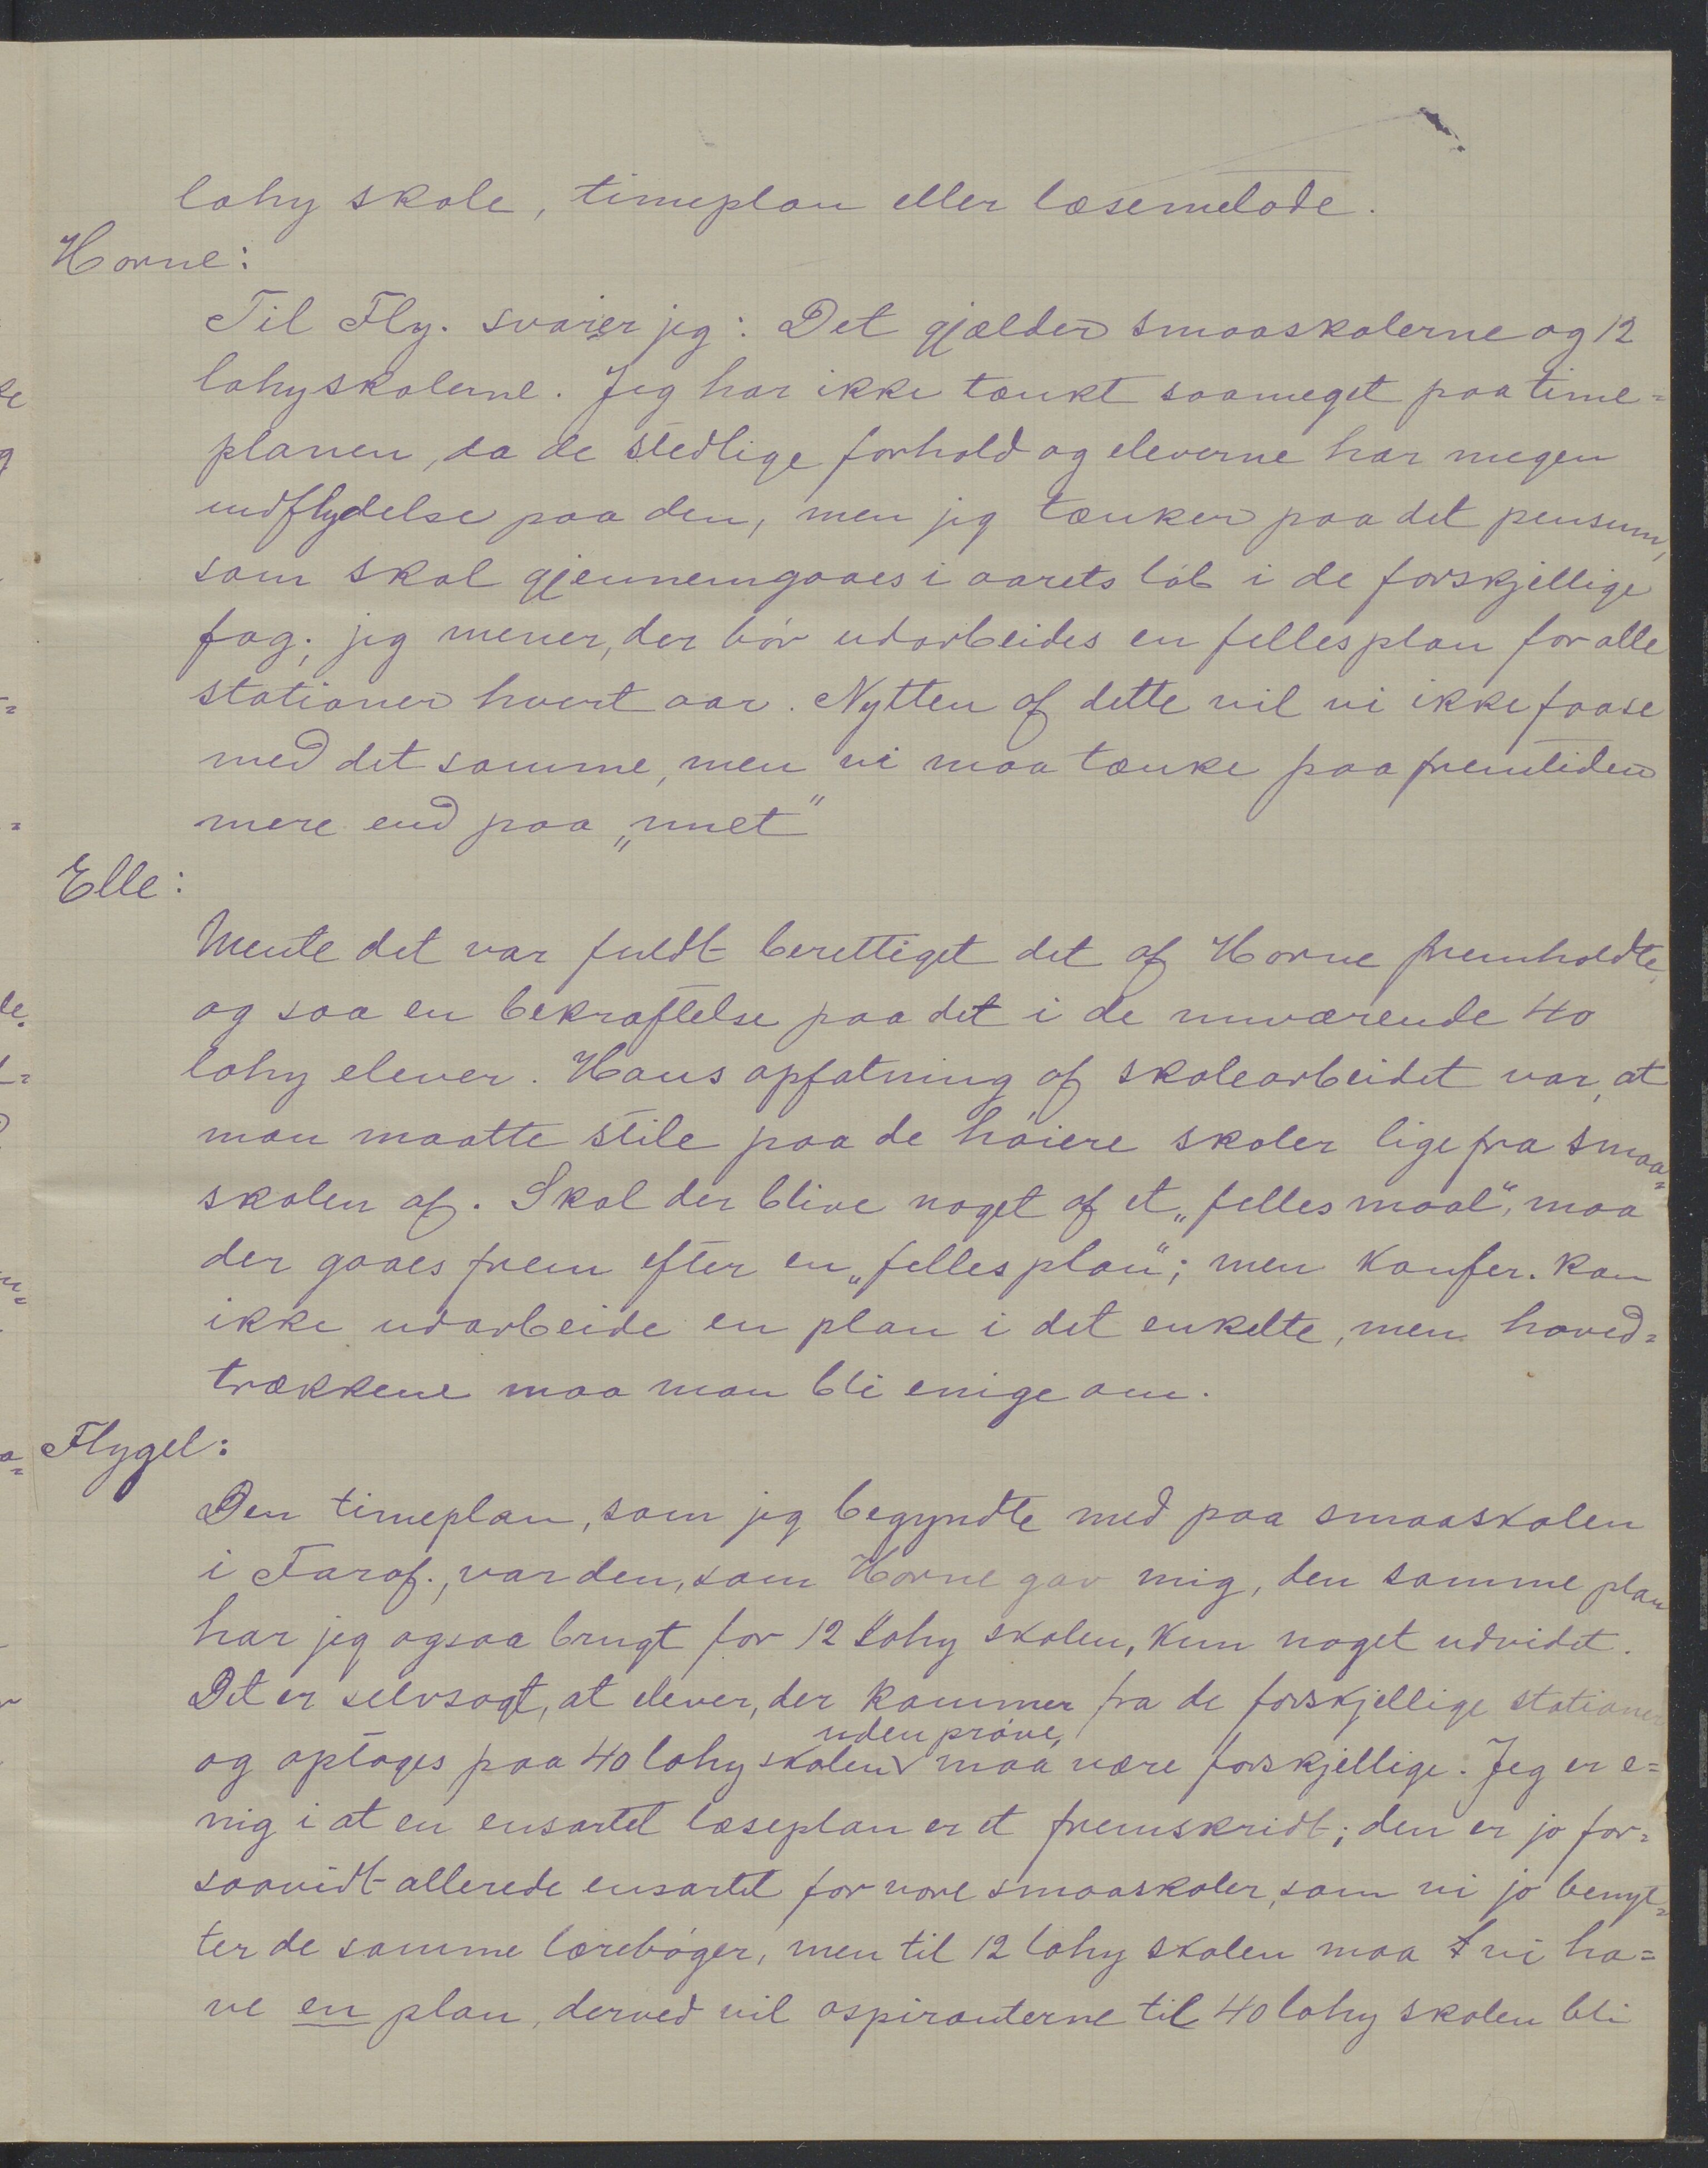 lahy skole, timeplan eller læsemetode.
Horne:
Til Fly. svarer jeg: Det gjælder smaaskolerne og 12
lahyskolerne. Jeg har ikke tænkt saameget paa time=
planen, da de stedlige forhold og eleverne har megen
indflydelse paa den, men jeg tænker paa det pensum,
som skal gjennemgaaes i aarets løb i de forskjellige
fag; jeg mener, der bør udarbeides en felles plan for alle
stationer hvert aar. Nytten af dette vil vi ikke faa se
med det samme, men vi maa tænke paa fremtiden
mere end paa „nuet“
Elle:
Mente det var fuldt berettiget det af Horne fremholdte,
og saa en bekræftelse paa det i de nuværende 40
lahy elever. Hans opfatning af skolearbeidet var, at
man maatte stile paa de høiere skoler lige fra smaa=
skolen af. Skal der blive noget af et „felles maal“, maa
der gaaes frem efter en „felles plan“; men konfer. kan
ikke udarbeide en plan i det enkelte, men hoved=
trækkene maa man bli enige om.
Flygel:
Den timeplan, som jeg begyndte med paa smaaskolen
i Faraf., var den, som Horne gav mig, den samme plan
har jeg ogsaa brugt for 12 lahy skolen, kun noget udvidet.
Det er selvsagt, at elever, der kommer fra de forskjellige stationer
uden prøve,
og optages paa 40 lahy skolen maa være forskjellige. Jeg er e=
nig i at en ensartet læseplan er et fremskridt; den er jo for=
saavidt allerede ensartet for vore smaaskoler, som vi jo benyt=
ter de samme lærebøger, men til 12 lahy skolen maa vi ha=
ve en plan, derved vil aspiranterne til 40 lahy skolen bli